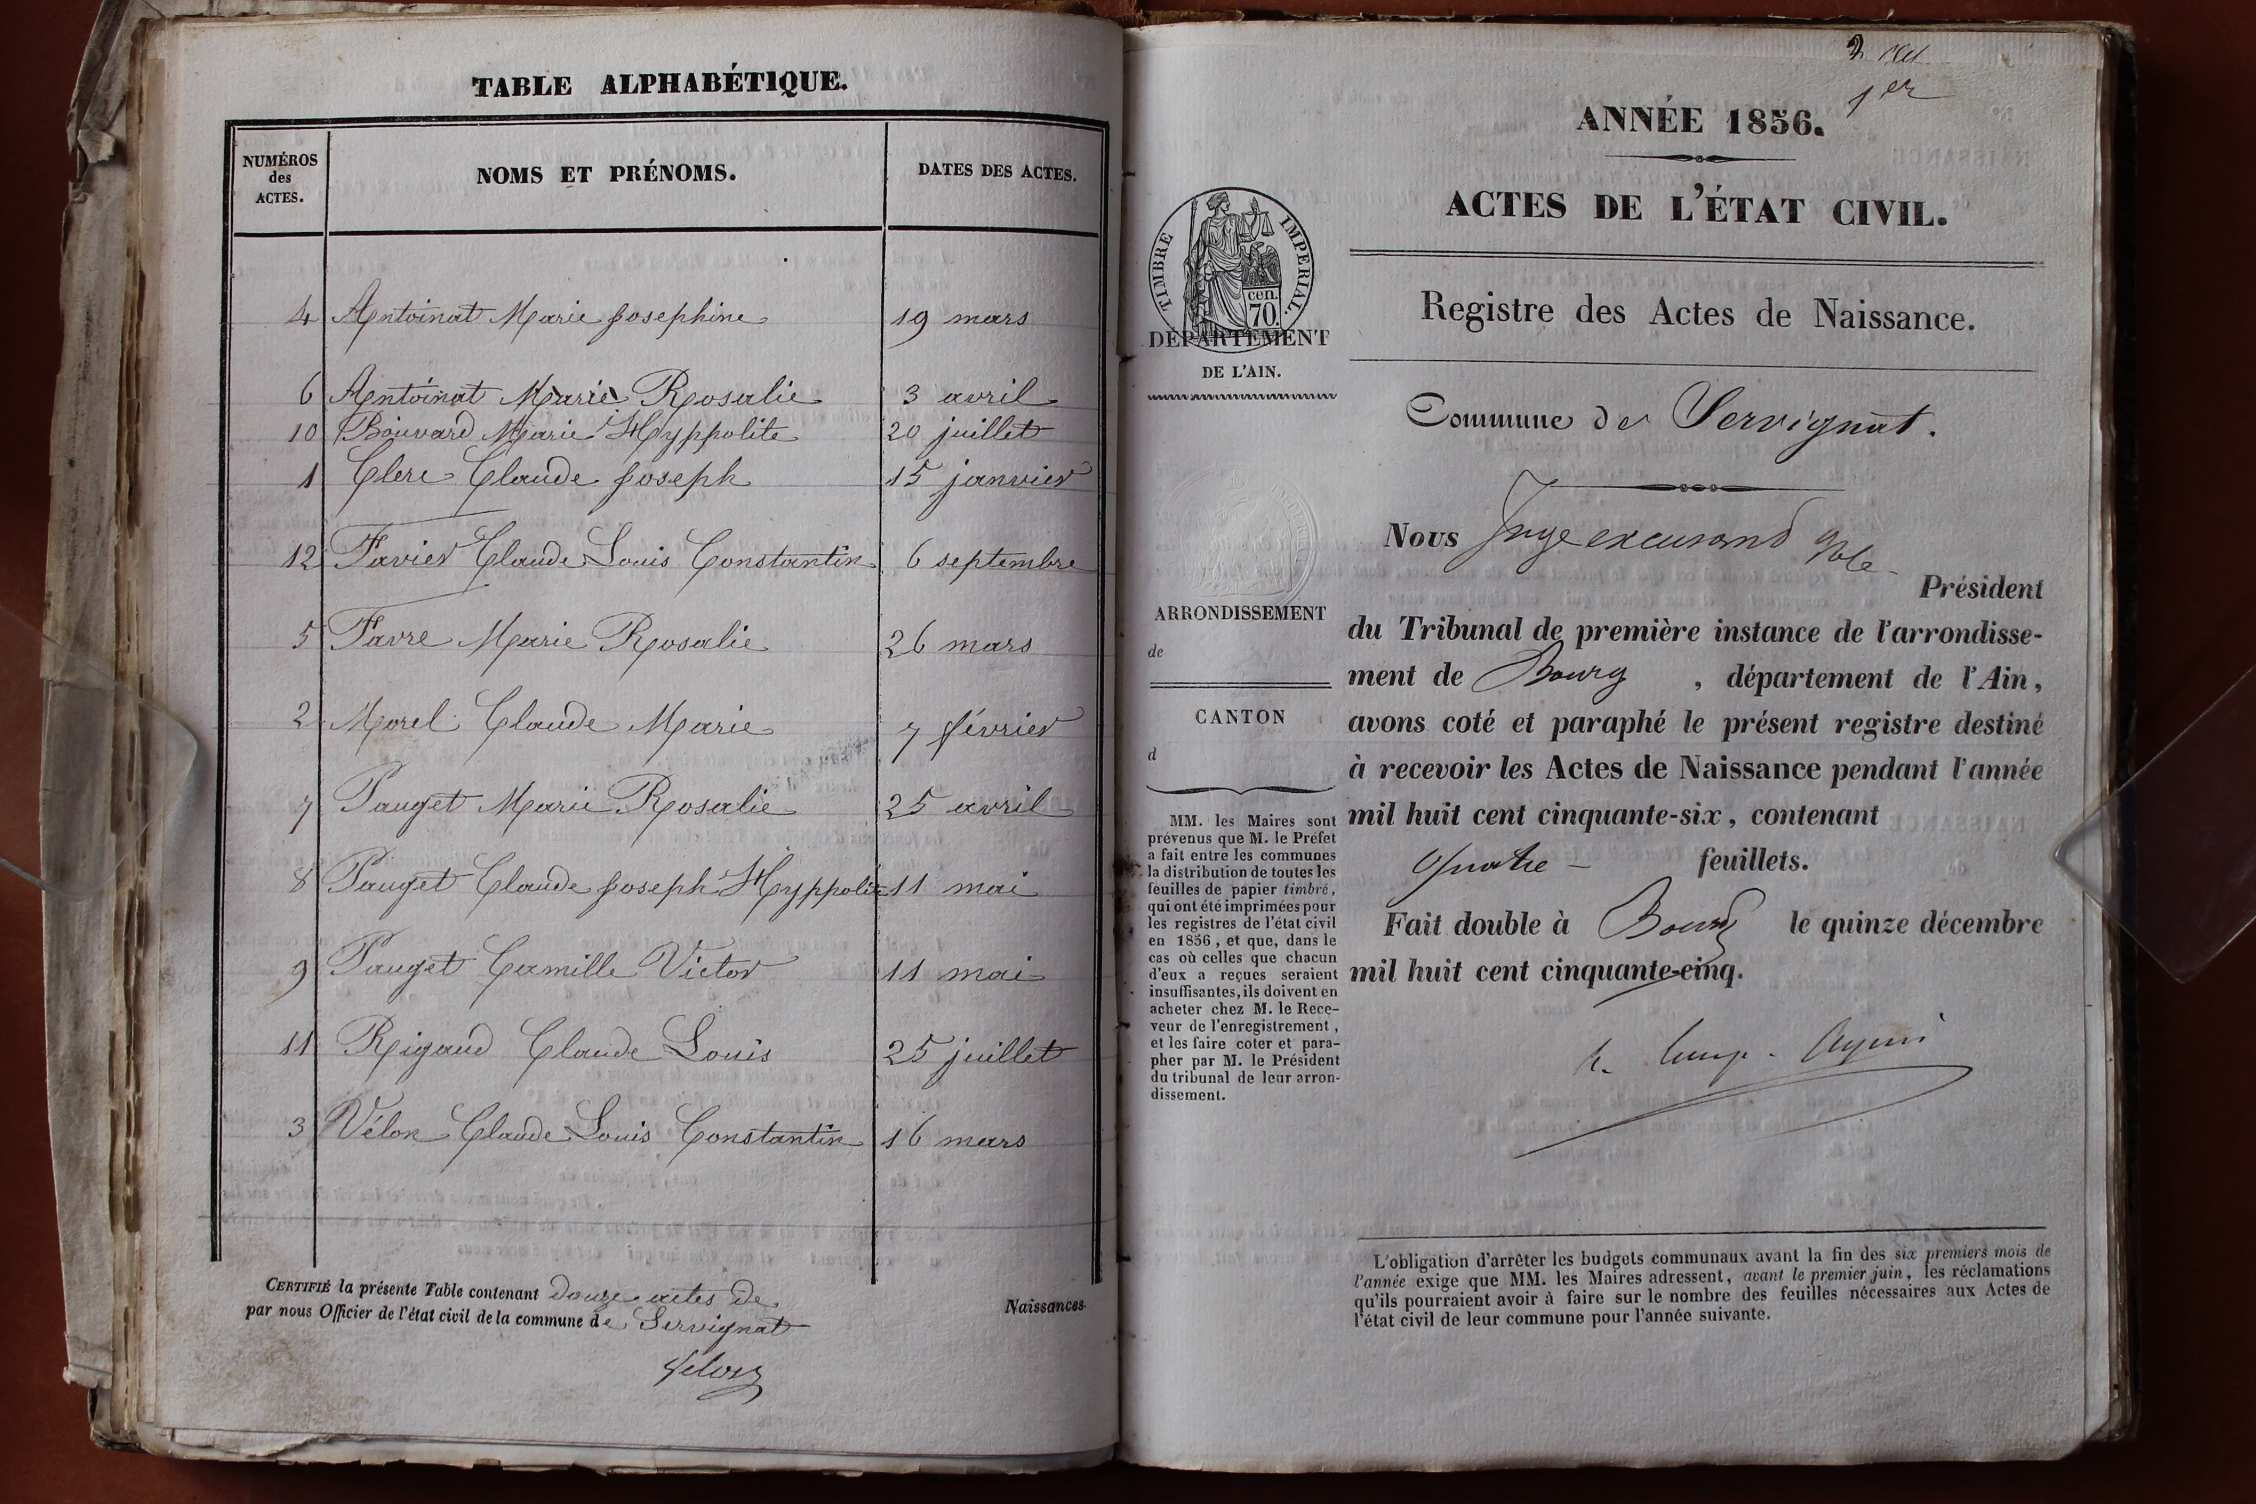 TABLE ALPHABÉTIQUE.
NUMÉROS des ACTES. NOMS ET PRÉNOMS. DATES DES ACTES.
4 Antoinat Marie Josephine 19 mars
6 Antoinat Marie Rosalie 3 avril
10 Bouvard Marie Hyppolite 20 juillet
1 Clerc Claude Joseph 15 janvier
12 Favier Claude Louis Constantin 6 septembre
5 Favre Marie Rosalie 26 mars
2 Morel Claude Marie 7 février
7 Pauget Marie Rosalie 25 avril
8 Pauget Claude Joseph Hyppolite 11 mai
9 Pauget Camille Victor 11 mai
11 Rigaud Claude Louis 25 juillet
3 Vélon Claude Louis Constantin 16 mars
CERTIFIÉ la présente Table contenant douze actes de Naissances
par nous Officier de l'état civil de la commune de Servignat
Velon
1er
ANNÉE 1856.
ACTES DE L'ÉTAT CIVIL.
TIMBRE IMPERIAL.
cen.
70.
DÉPARTEMENT
DE L'AIN.
Registre des Actes de Naissance.
Commune de Servignat.
ARRONDISSEMENT
de
CANTON
d
MM. les Maires sont
prévenus que M. le Préfet
a fait entre les communes
la distribution de toutes les
feuilles de papier timbré,
qui ont été imprimées pour
les registres de l'état civil
en 1856, et que, dans le
cas où celles que chacun
d'eux a reçues seraient
insuffisantes, ils doivent en
acheter chez M. le Rece-
veur de l'enregistrement,
et les faire coter et para-
pher par M. le Président
du tribunal de leur arron-
dissement.
Nous Juge
Président
du Tribunal de première instance de l'arrondisse-
ment de Bourg, département de l'Ain,
avons coté et paraphé le présent registre destiné
à recevoir les Actes de Naissance pendant l'année
mil huit cent cinquante-six, contenant
quatre feuillets.
Fait double à Bourg le quinze décembre
mil huit cent cinquante-cinq.
L'obligation d'arrêter les budgets communaux avant la fin des six premiers mois de
l'année exige que MM. les Maires adressent, avant le premier juin, les réclamations
qu'ils pourraient avoir à faire sur le nombre des feuilles nécessaires aux Actes de
l'état civil de leur commune pour l'année suivante.